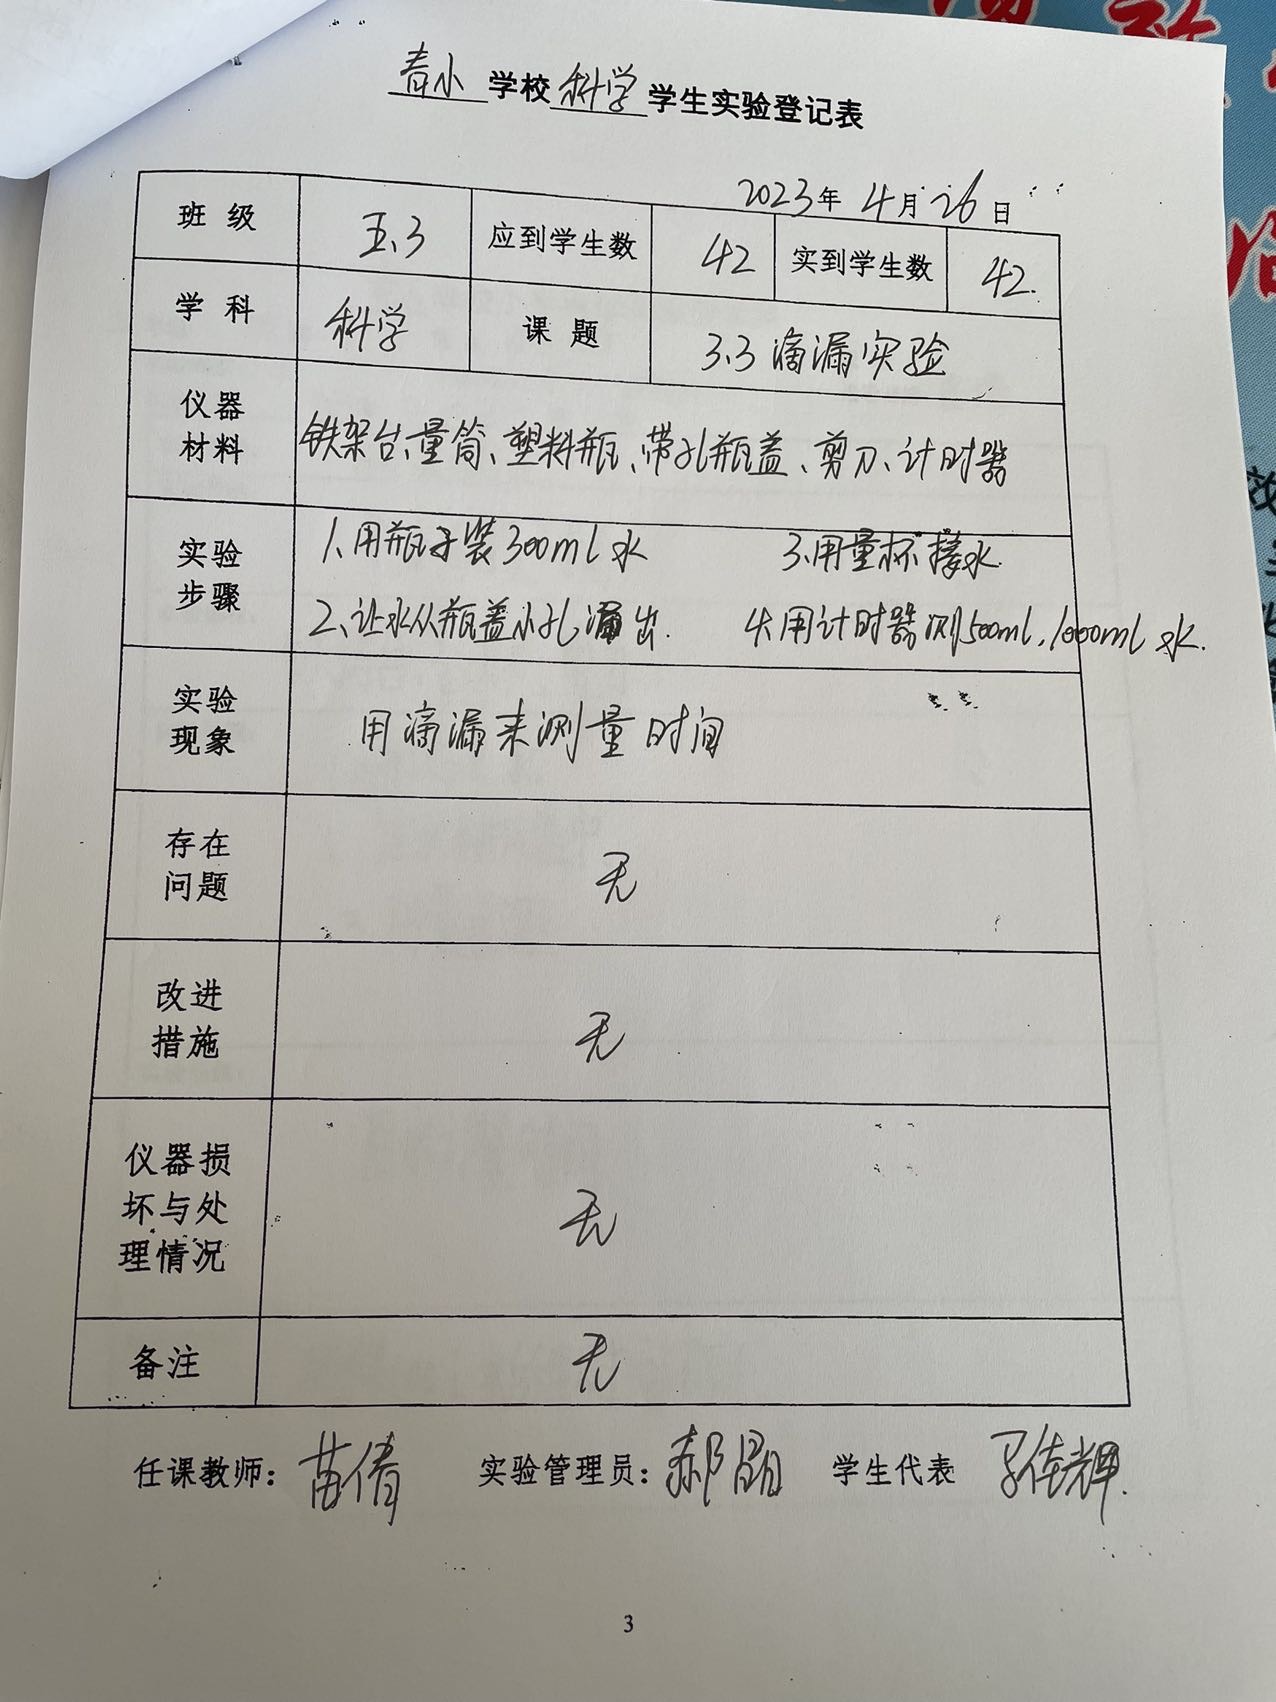 青小 学校 科学 学生实验登记表
2023年 4月 26日
班级 五.3 应到学生数 42 实到学生数 42.
学科 科学 课题 3.3 滴漏实验
仪器
材料
铁架台、量筒、塑料瓶、带孔瓶盖、剪刀、计时器
实验
步骤
1、用瓶子装300ml水 3.用量杯接水.
2、让水从瓶盖小孔漏出. 4.用计时器测500ml,1000ml水.
实验
现象
用滴漏来测量时间
存在
问题
无
改进
措施
无
仪器损
坏与处
理情况
无
备注 无
任课教师: 苗倩 实验管理员: 郝晶 学生代表 佳辉.
3
效